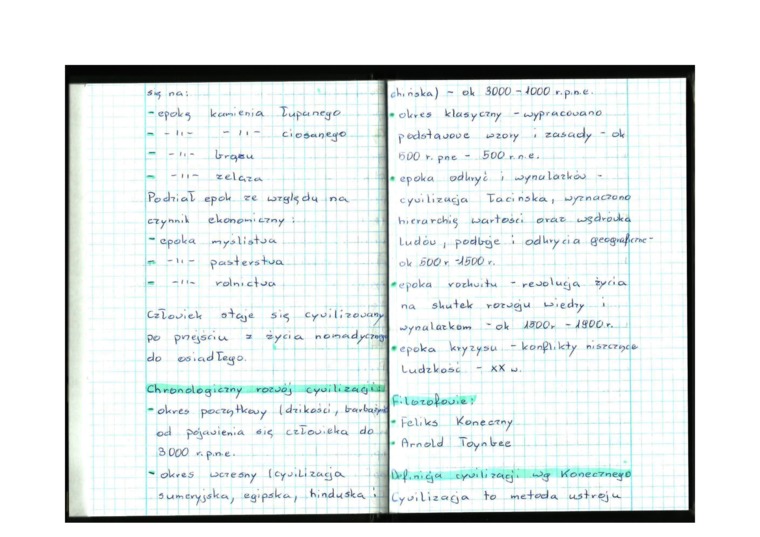 się na:
- epokę kamienia łupanego
- -11- -11- ciosanego
- -11- brązu
- -11- żelaza
Podział epok ze względu na
czynnik ekonomiczny:
- epoka myślistwa
- -11- pasterstwa
- -11- rolnictwa
Człowiek staje się cywilizowany
po przejściu z życia nomadycznego
do osiadłego.
Chronologiczny rozwój cywilizacji:
- okres początkowy (dzikości, barbarzyń
od pojawienia się człowieka do
3000 r.p.n.e.
- okres wczesny (cywilizacja
sumeryjska, egipska, hinduska i
chińska) - ok 3000 - 1000 r.p.n.e.
• okres klasyczny - wypracowano
podstawowe wzory i zasady - ok
500 r. pne - 500 r.n.e.
• epoka odkryć i wynalazków -
cywilizacja łacińska, wyznaczono
hierarchię wartości oraz wędrówka
ludów, podboje i odkrycia geograficzne -
ok 500 r. - 1500 r.
• epoka rozkwitu - rewolucja życia
na skutek rozwoju wiedzy i
wynalazkom - ok 1500 r. - 1900 r.
• epoka kryzysu - konflikty niszczące
ludzkość - XX w.
Filozofowie:
• Feliks Koneczny
• Arnold Toynbee
Definicja cywilizacji wg Konecznego
Cywilizacja to metoda ustroju